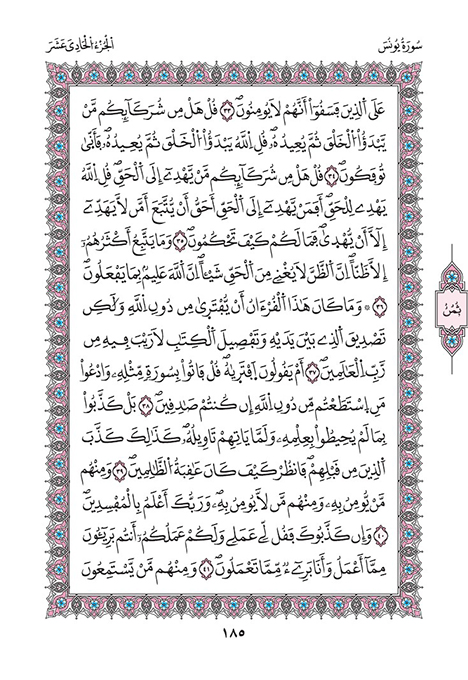 سُورَةُ يُونُسَ
اَلْجُزْءُ الْحَادِي عَشَرَ
عَلَى اَلذِينَ فَسَقُوٓاْ أَنَّهُمْ لَا يُومِنُونَۖ ٣٣ قُلْ هَلْ مِن شُرَكَآئِكُم مَّنْ
يَّبْدَؤُاْ اُلْخَلْقَ ثُمَّ يُعِيدُهُۥۖ قُلِ اِللَّهُ يَبْدَؤُاْ اُلْخَلْقَ ثُمَّ يُعِيدُهُۥۖ فَأَنَّىٰ
تُوفَكُونَۖ ٣٤ قُلْ هَلْ مِن شُرَكَآئِكُم مَّنْ يَّهْدِےٓ إِلَى اَلْحَقِّۖ قُلِ اِللَّهُ
يَهْدِے لِلْحَقِّۖ أَفَمَنْ يَّهْدِےٓ إِلَى اَلْحَقِّ أَحَقُّ أَنْ يُّتَّبَعَ أَمَّن لَّا يَهَدِّےٓ
إِلَّآ أَنْ يُّهْدَىٰۖ فَمَا لَكُمْ كَيْفَ تَحْكُمُونَۖ ٣٥ وَمَا يَتَّبِعُ أَكْثَرُهُمُۥٓ
إِلَّا ظَنّاًۖ اِنَّ اَلظَّنَّ لَا يُغْنِے مِنَ اَلْحَقِّ شَيْـٔاًۖ اِنَّ اَللَّهَ عَلِيمُۢ بِمَا يَفْعَلُونَۖ
٣٦ ۞ وَمَا كَانَ هَٰذَا اَلْقُرْءَانُ أَنْ يُّفْتَرَىٰ مِن دُونِ اِللَّهِ وَلَٰكِن
تَصْدِيقَ اَلذِے بَيْنَ يَدَيْهِ وَتَفْصِيلَ اَلْكِتَٰبِ لَا رَيْبَ فِيهِ مِن
رَّبِّ اِلْعَٰلَمِينَۖ ٣٧ أَمْ يَقُولُونَ اَفْتَرَىٰهُۖ قُلْ فَاتُواْ بِسُورَةٖ مِّثْلِهِۦ وَادْعُواْ
مَنِ اِسْتَطَعْتُم مِّن دُونِ اِللَّهِ إِن كُنتُمْ صَٰدِقِينَۖ ٣٨ بَلْ كَذَّبُواْ
بِمَا لَمْ يُحِيطُواْ بِعِلْمِهِۦ وَلَمَّا يَاتِهِمْ تَاوِيلُهُۥۖ كَذَٰلِكَ كَذَّبَ
اَلذِينَ مِن قَبْلِهِمْۖ فَانظُرْ كَيْفَ كَانَ عَٰقِبَةُ اُلظَّٰلِمِينَۖ ٣٩ وَمِنْهُم
مَّنْ يُّومِنُ بِهِۦ وَمِنْهُم مَّن لَّا يُومِنُ بِهِۦۖ وَرَبُّكَ أَعْلَمُ بِالْمُفْسِدِينَۖ
٤٠ وَإِن كَذَّبُوكَ فَقُل لِّے عَمَلِے وَلَكُمْ عَمَلُكُمُۥٓ أَنتُم بَرِيٓـُٔونَ
مِمَّآ أَعْمَلُ وَأَنَا بَرِےٓءٞ مِّمَّا تَعْمَلُونَۖ ٤١ وَمِنْهُم مَّنْ يَّسْتَمِعُونَ
ثُمُنُ
١٨٥